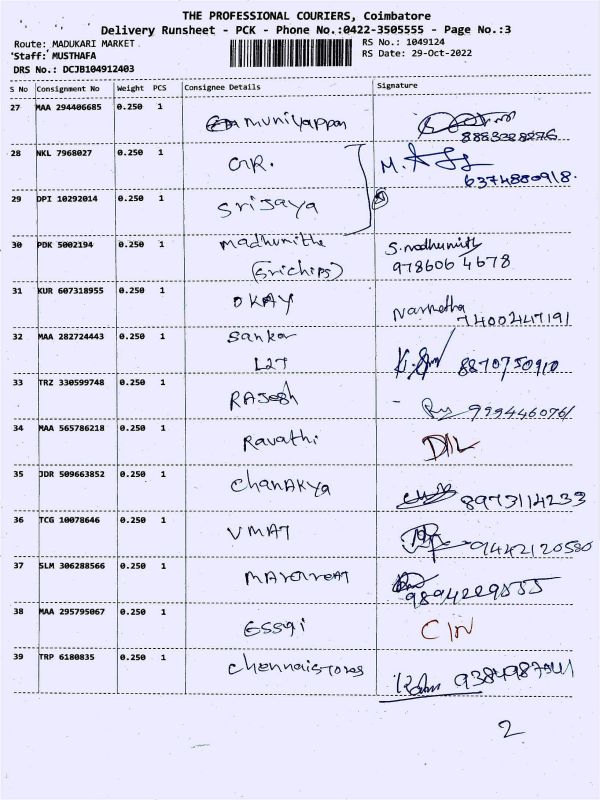 THE PROFESSIONAL COURIERS, Coimbatore
Delivery Runsheet - PCK - Phone No.:0422-3505555 - Page No.:3
Route: MADUKARI MARKET RS No.: 1049124
Staff: MUSTHAFA RS Date: 29-Oct-2022
DRS No.: DCJB104912403
S No Consignment No Weight PCS Consignee Details Signature
27 MAA 294406685 0.250 1 muniyappan
28 NKL 7968027 0.250 1 G.R. 6374880918.
29 DPI 10292014 0.250 1 Srijaya
30 PDK 5002194 0.250 1 madhumithe S.madhumith
(Srichips) 978606 4678
31 KUR 607318955 0.250 1 OKAY Narmatha
7400247191
32 MAA 282724443 0.250 1 Sankar
L&T 8870750910
33 TRZ 330599748 0.250 1 RAJesh 999446076/
34 MAA 565786218 0.250 1 Ravathi D/L
35 JDR 509663852 0.250 1 ChanAkya 8973114233
36 TCG 10078646 0.250 1 VMAT 9442120580
37 SLM 306288566 0.250 1
38 MAA 295795067 0.250 1 ESSgi C/N
39 TRP 6180835 0.250 1 Chennaistores
2